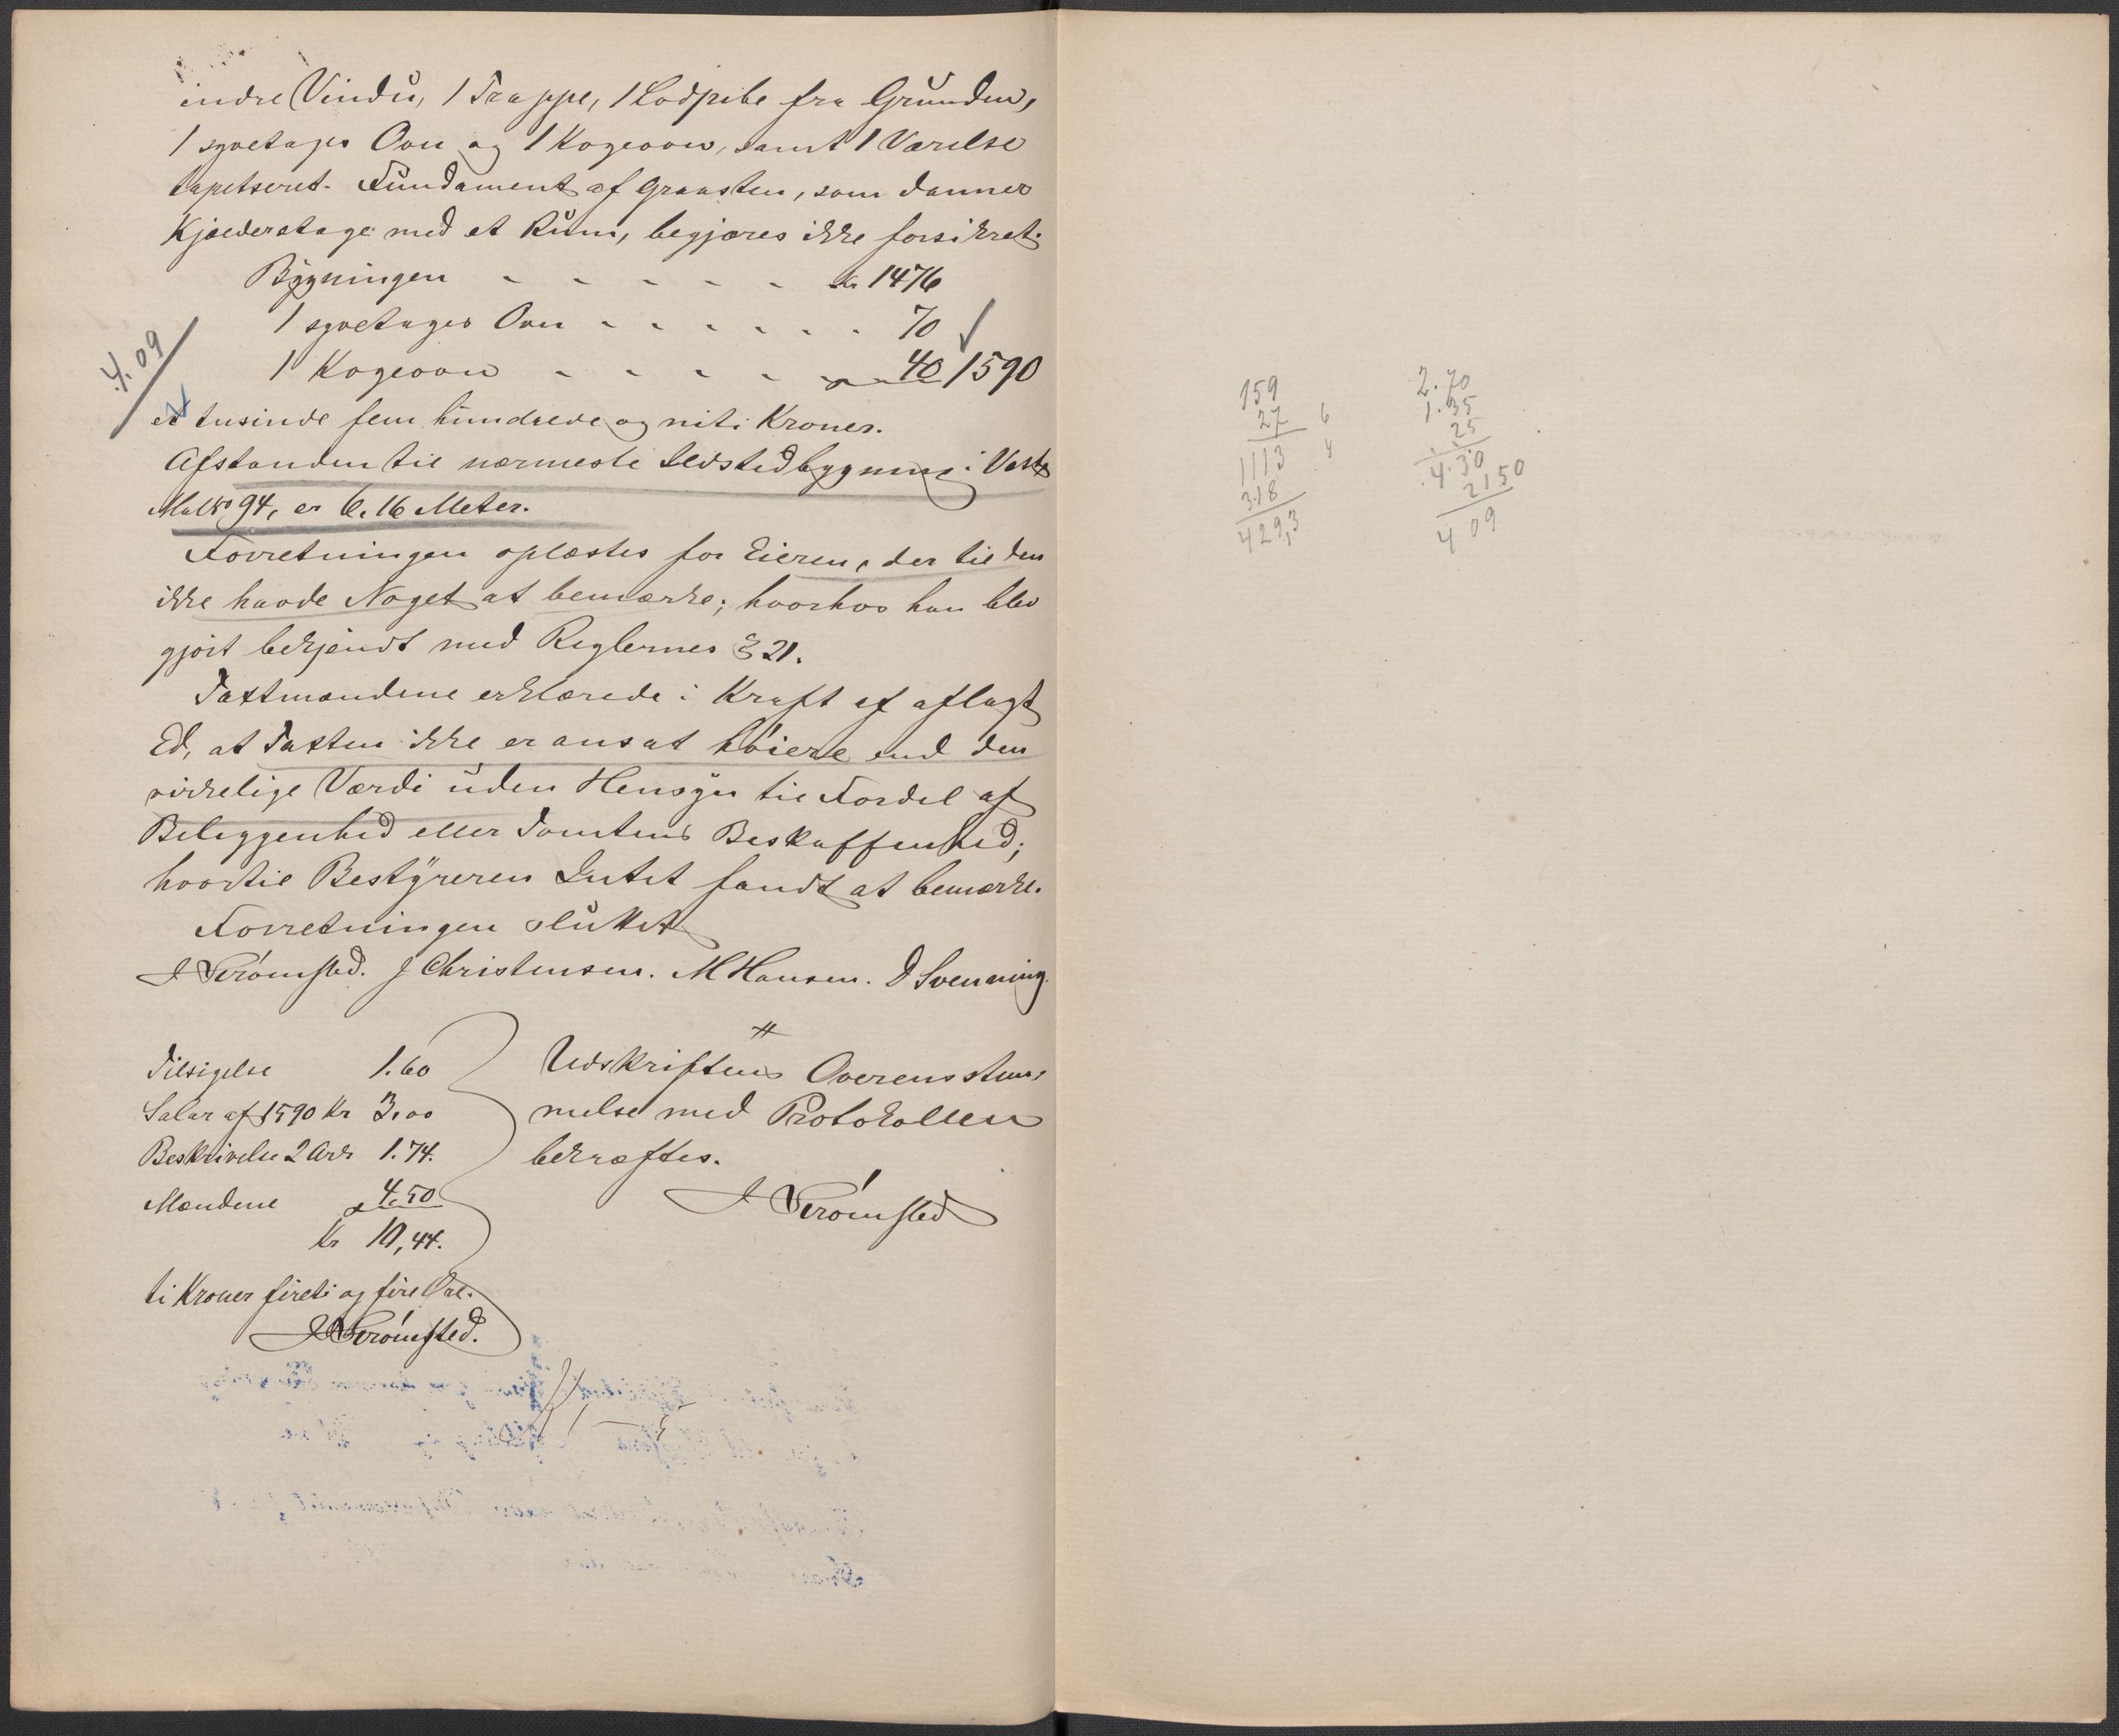 indre Vindu, 1 Trappe, 1 Lodpibe fra Grunden,
1 syvetages Ovn og 1 Kogeovn, samt 1 Værelse
tapetseret. Fundament af Graasten, som danner
Kjælderetage med et Rum, begjæres ikke forsikret.
Bygningen - - - - - - Kr 1476
1 syvetages Ovn - - - - - - 70
1 Kogeovn - - - - - 40 1590
4.09
et tusinde fem hundrede og niti Kroner.
Afstanden til nærmeste Ildstedbygning i Vest,
Mat No 94, er 6.16 Meter.
Forretningen oplæstes for Eieren, der til den
ikke havde Noget at bemærke; hvorhos han blev
gjort bekjendt med Reglernes § 21.
Taxtmændene erklærede i Kraft af aflagt
Ed, at Taxten ikke er ansat høiere end den
virkelige Værdi uden Hensyn til Fordel af
Beliggenhed eller Tomtens Beskaffenhed;
hvortil Bestyreren Intet fandt at bemærke.
Forretningen sluttet
J Strömsted. J Christensen. M Hansen. D Svenning.
Tilsigelse 1.60
Salar af 1590 Kr 3.00
Beskrivelse 2 Ark 1.74.
Mændene 4.50
Kr 10,44.
ti Kroner fireti og fire Øre.
J Strömsted.
Udskriftens Overensstem-
melse med Protokollen
bekræftes.
J Strömsted
159
27
1113
318
429,3
6
4
2.70
1.35
25
4.30
2150
409